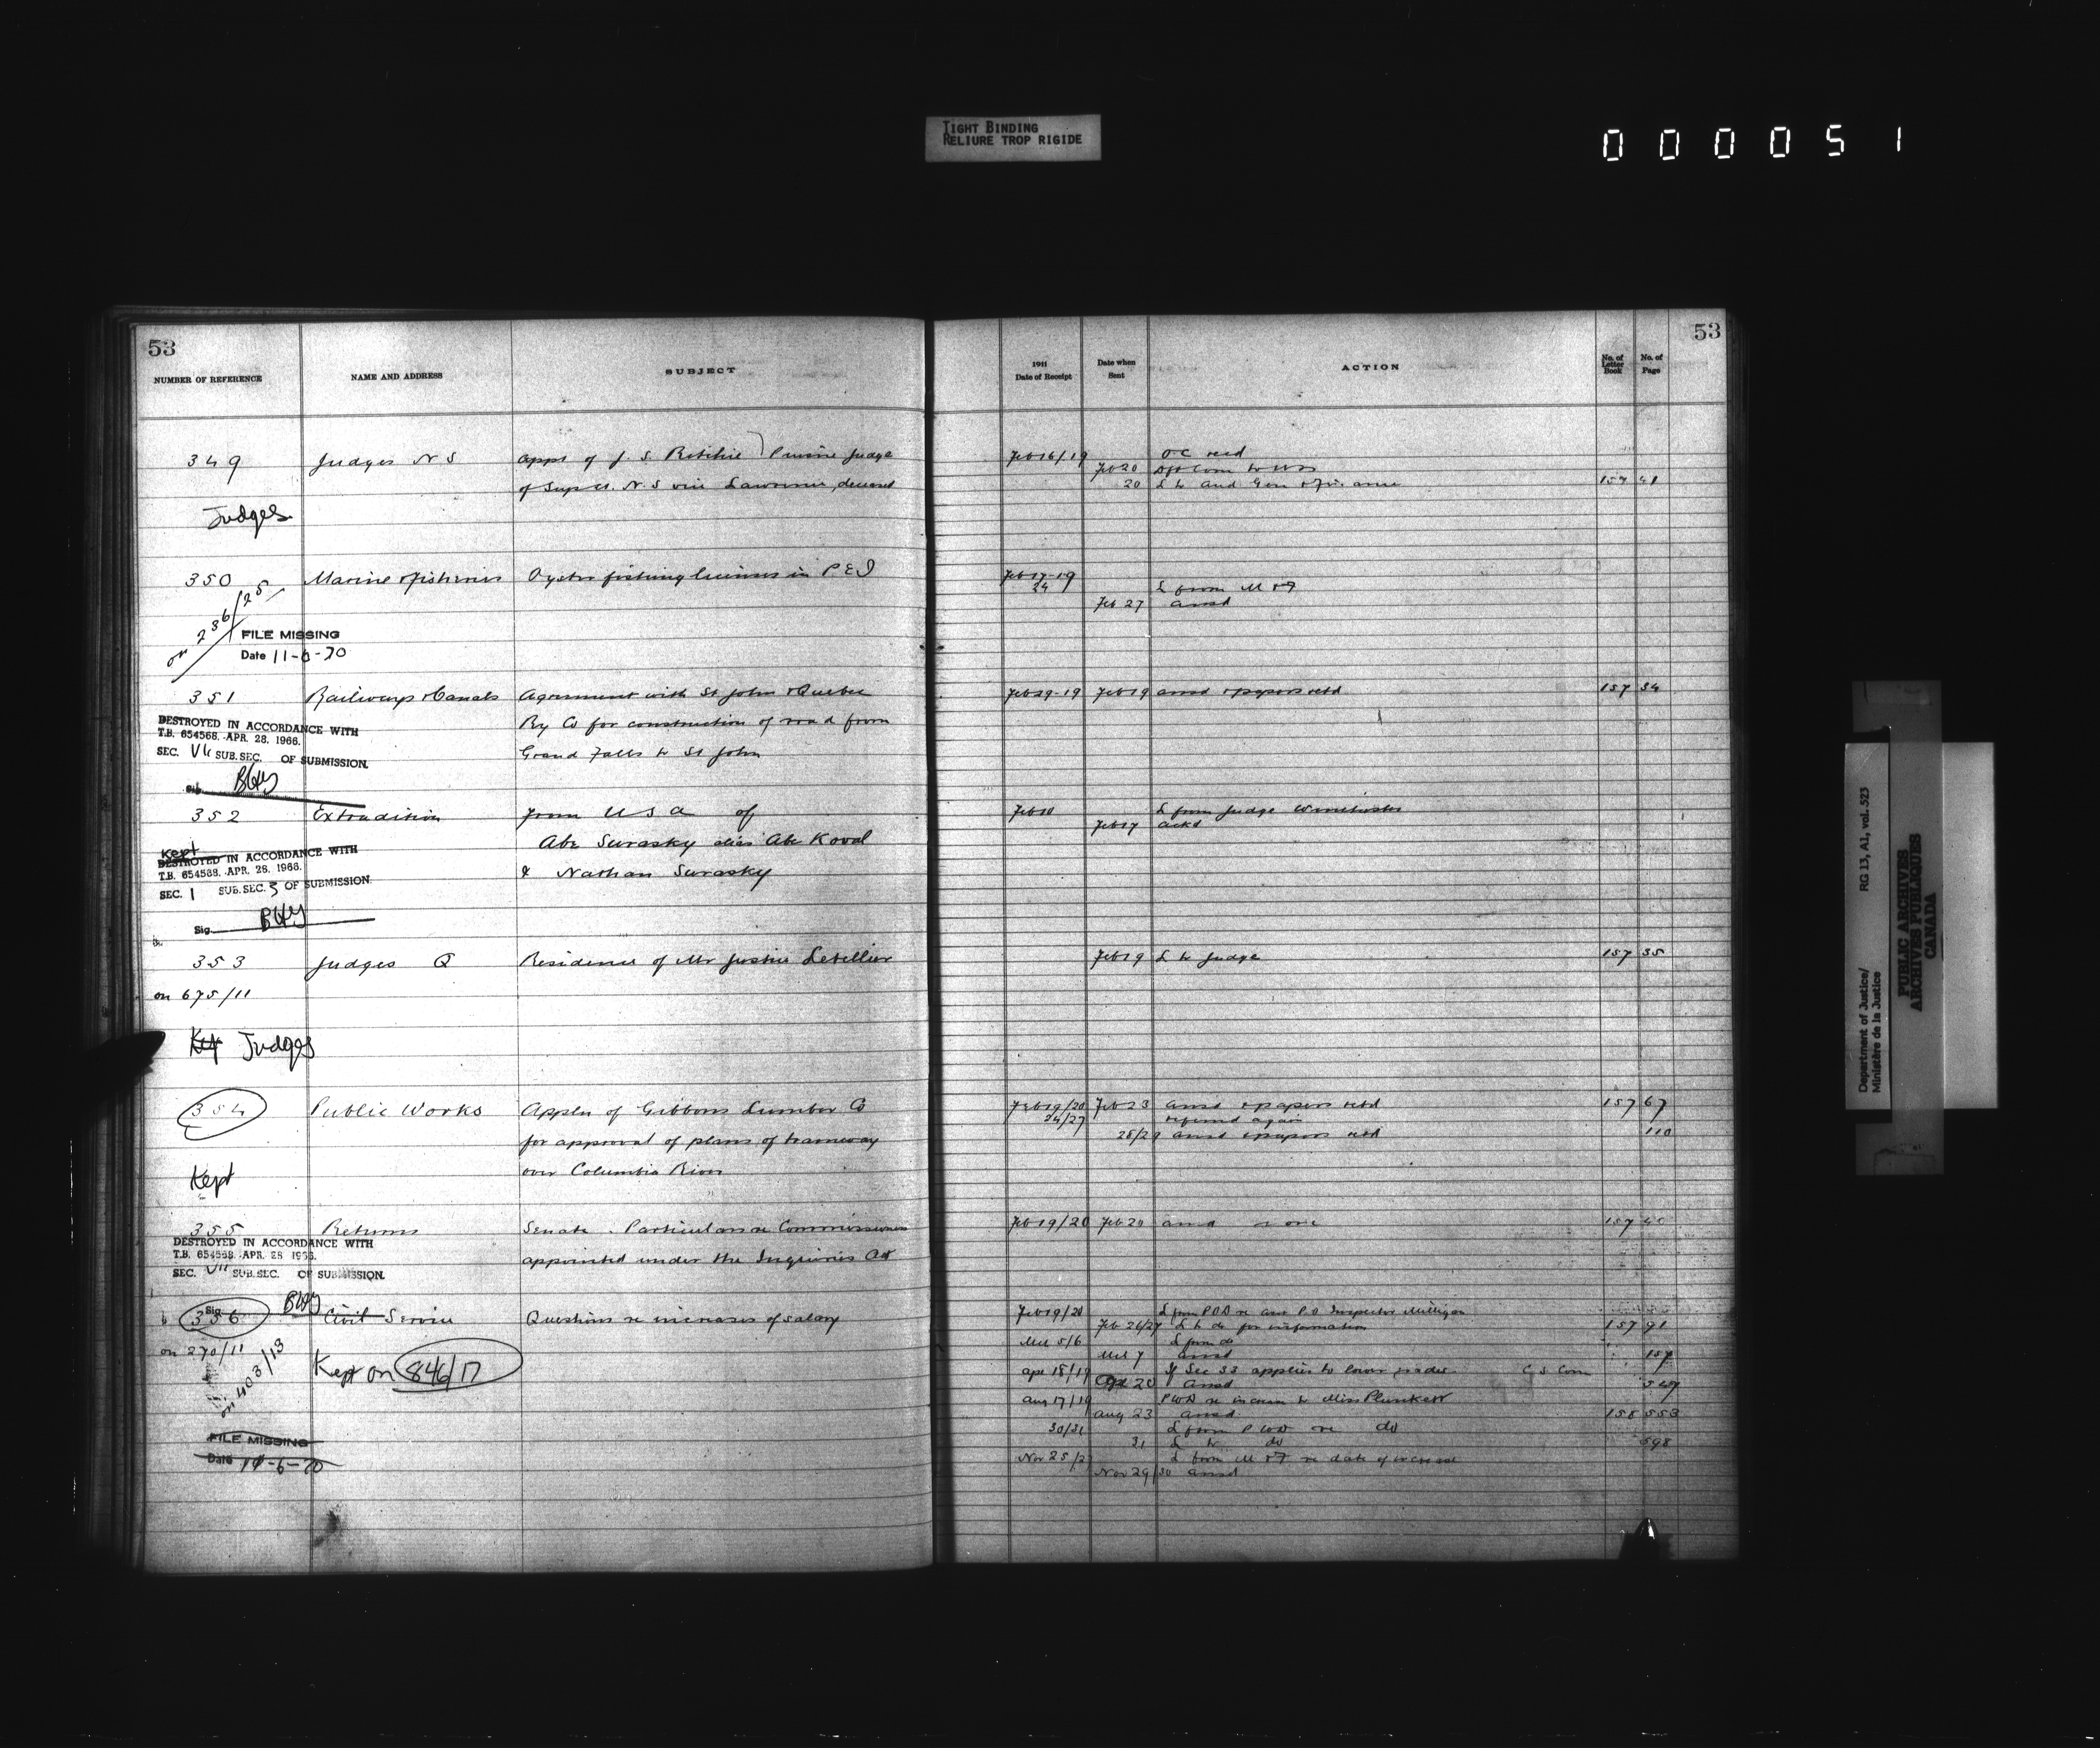 TIGHT BINDING
RELIURE TROP RIGIDE
000051
53
NUMBER OF REFERENCE NAME AND ADDRESS SUBJECT
349 Judges N S Appt of J. S. Ritchie Puisne Judge
of Sup Ct. N. S vice Lawrence, deceased
Judges
350 Marine & Fisheries Oyster fishing licenses in P E I
on 236/25
FILE MISSING
Date 11-6-70
351 Railways & Canals Agreement with St John & Quebec
Ry Co for construction of road from
Grand Falls to St John
DESTROYED IN ACCORDANCE WITH
T.B. 654568. APR. 28. 1966.
SEC. VII SUB. SEC. OF SUBMISSION.
Sig.
352 Extradition from U S A of
Abe Surasky alias Abe Koval
& Nathan Surasky
Kept
DESTROYED IN ACCORDANCE WITH
T.B. 654568. APR. 28. 1966.
SEC. 1 SUB. SEC. 3 OF SUBMISSION.
Sig.
353 Judges Q Residence of Mr Justice Letellier
on 675/11
Kept Judges
354 Public Works Appln of Gibbons Lumber Co
for approval of plans of tramway
over Columbia River
Kept
355 Returns Senate. Particulars re Commissioners
appointed under the Inquiries Act
DESTROYED IN ACCORDANCE WITH
T.B. 654568. APR. 28 1966.
SEC. VII SUB. SEC. OF SUBMISSION.
Sig.
356 Civil Service Questions re increases of salary
on 270/11
on 403/13
Kept on 846/17
FILE MISSING
Date 11-6-70
53
1911
Date of Receipt Date when Sent ACTION No. of Letter Book No. of Page
Feb 16/19 O C recd
Feb 20
20 L to Aud Gen & Finance 157 41
Feb 17-19
24 L from M & F
Feb 27 ansd
Feb 29-19 Feb 19 ansd & papers retd 157 34
Feb 10 L from Judge Winchester
Feb 17 ackd
Feb 19 L to Judge 157 35
Feb 19/20 Feb 23 ansd & papers retd 157 67
24/27 referred again
28/29 ansd & papers retd 110
Feb 19/20 Feb 20 ansd none 157
Feb 19/20 L from POD re P.O Inspector Milligan
Feb 26/27 L to do for information 157 91
Mch 5/6 L from do
Mch 7 ansd 157
Apr 18/19 If Sec 33 applies to lower grades C S Com
Apr 20 ansd
Aug 17/19 PWD re increase to Miss Plunkett
Aug 23 ansd 158 553
30/31 L from P W D re do
31 L to do 598
Nov 25/27 L from M & F re date of increase
Nov 29/30 ansd
Department of Justice/ RG 13, A1, vol. 523
Ministère de la Justice
PUBLIC ARCHIVES
ARCHIVES PUBLIQUES
CANADA